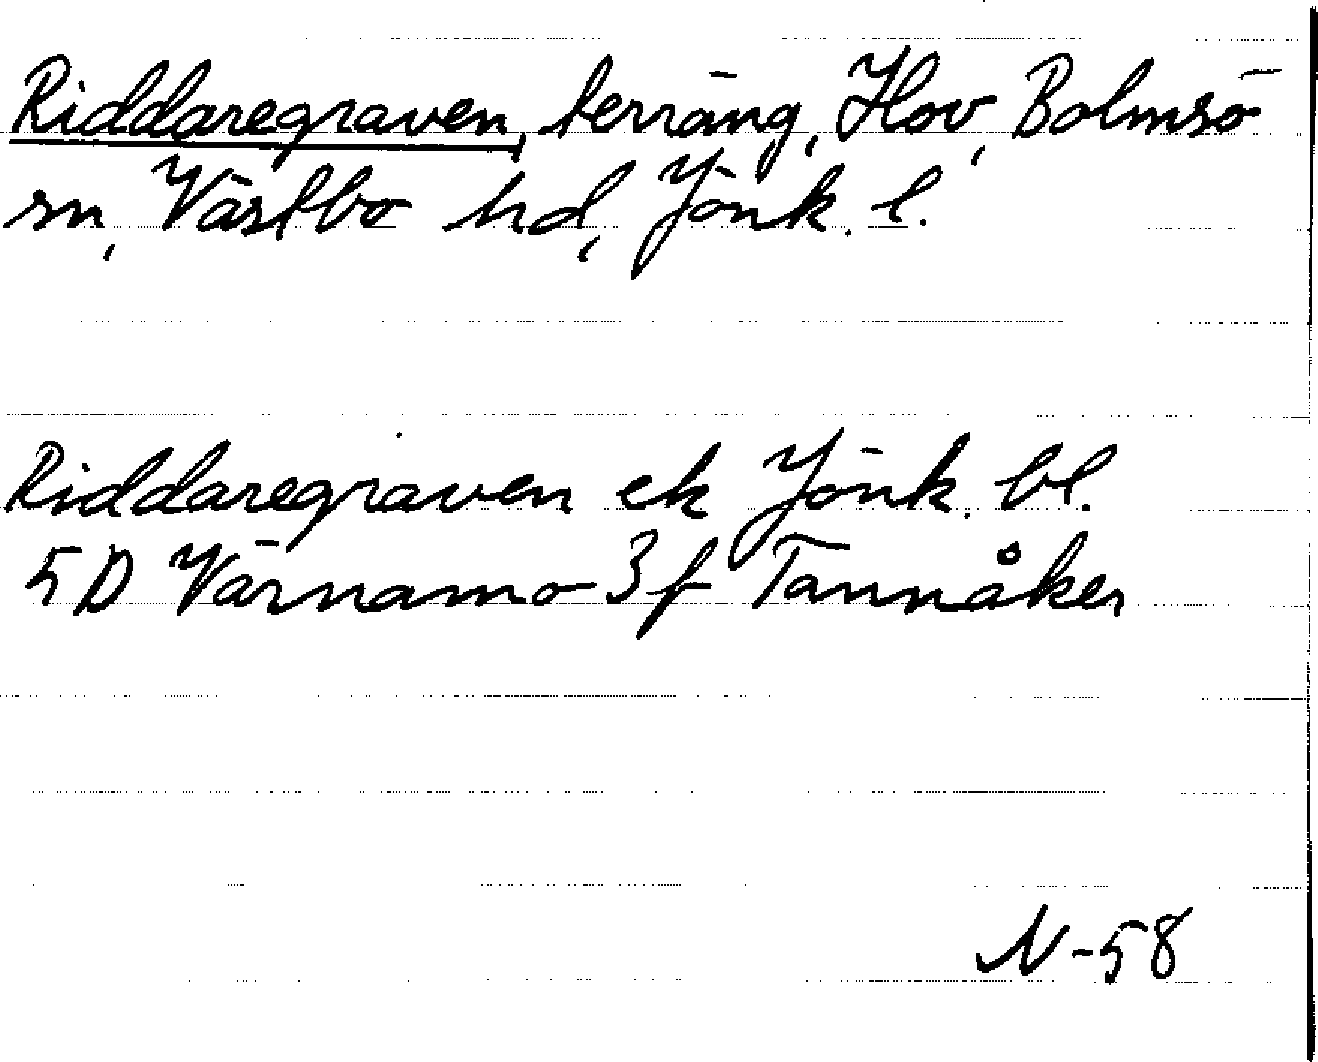 Riddaregraven, terräng, Hov, Bolmsö
sn, Västbo hd, Jönk. l.
Riddaregraven ek Jönk. bl.
5D Värnamo 3f Tannåker
N-58